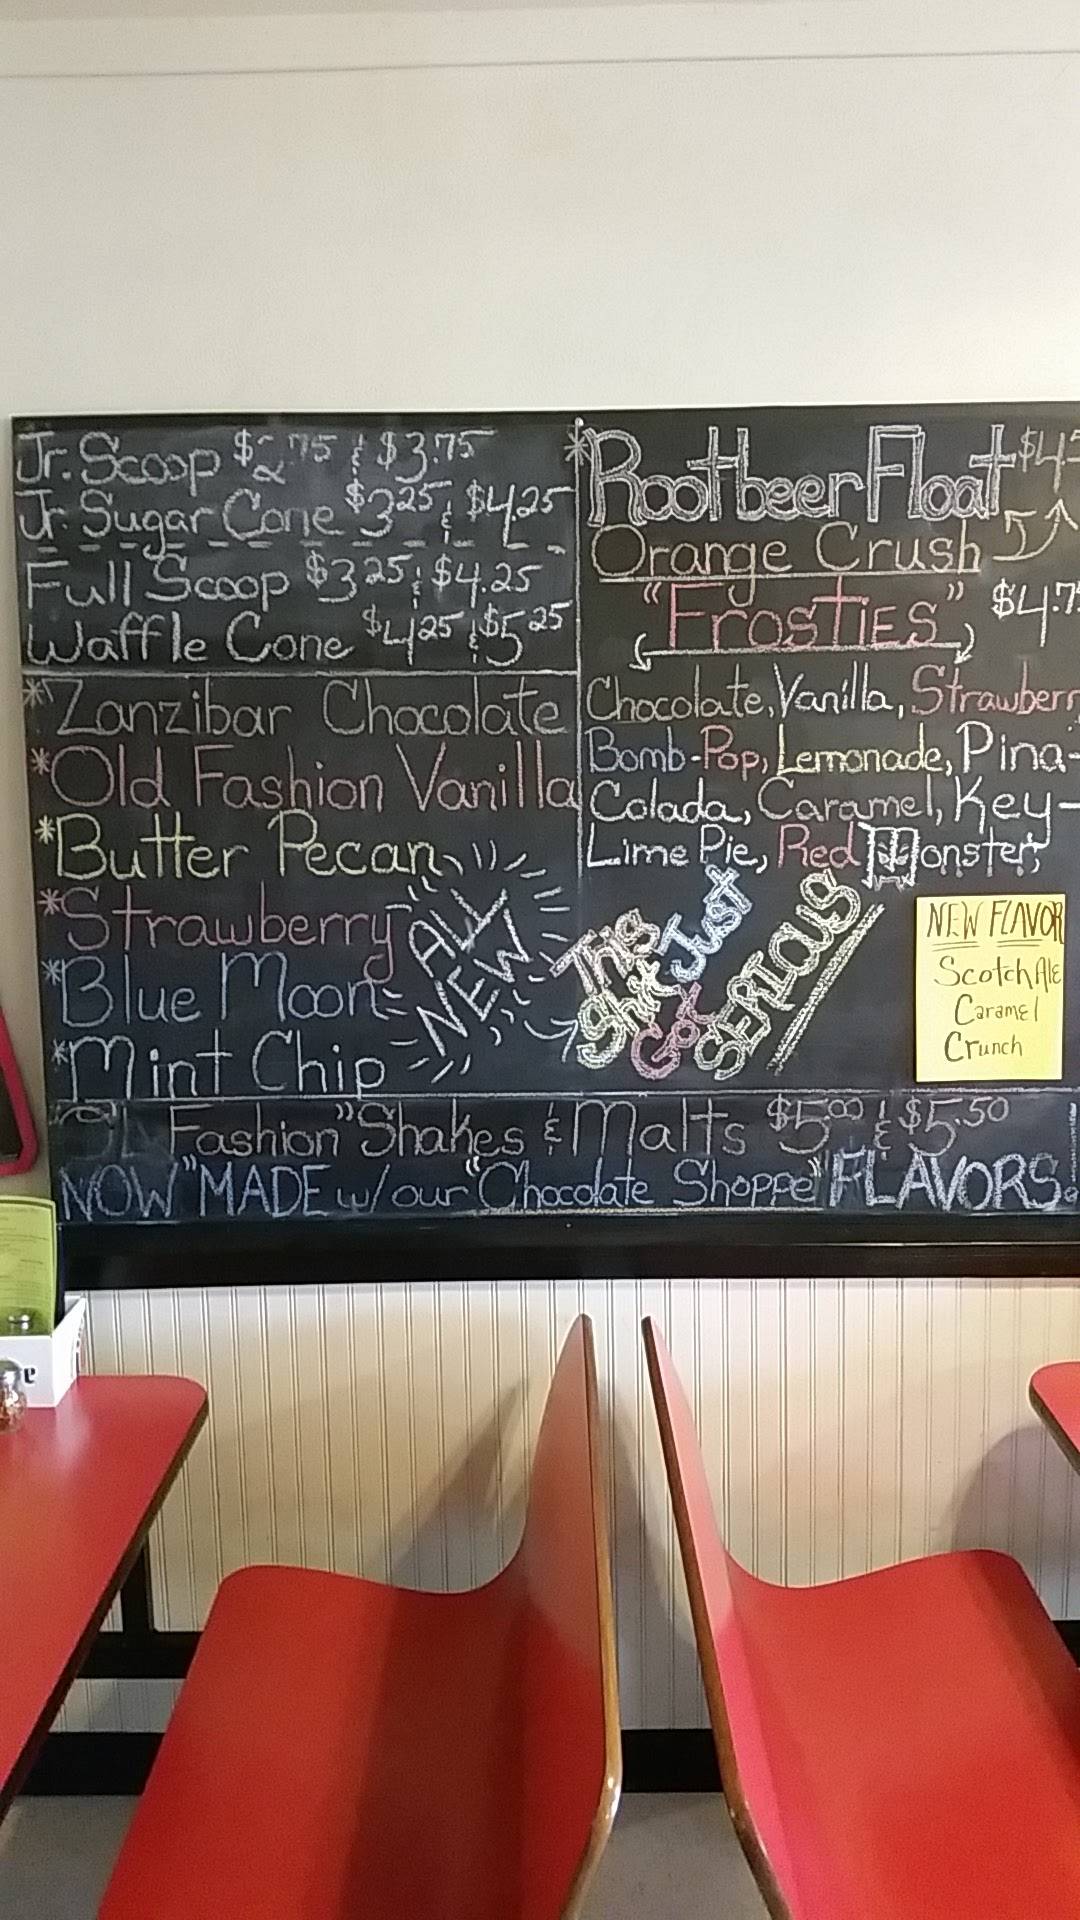 Jr. Scoop $2.75 & $3.75
Jr. Sugar Cone $3.25 & $4.25
Full Scoop $3.25 & $4.25
Waffle Cone $4.25 & $5.25
*Zanzibar Chocolate
*Old Fashion Vanilla
*Butter Pecan
*Strawberry
*Blue Moon
*Mint Chip
ALL
NEW
*Rootbeer Float
Orange Crush
"Frosties"
Chocolate, Vanilla, Strawberr
Bomb-Pop, Lemonade, Pina-
Colada, Caramel, Key-
Lime Pie, Red Monster,
This Shit Just
Got SERIOUS
NEW FLAVOR
Scotch Ale
Caramel
Crunch
Fashion" Shakes & Malts $5.00 & $5.50
NOW "MADE w/our "Chocolate Shoppe" FLAVORS!